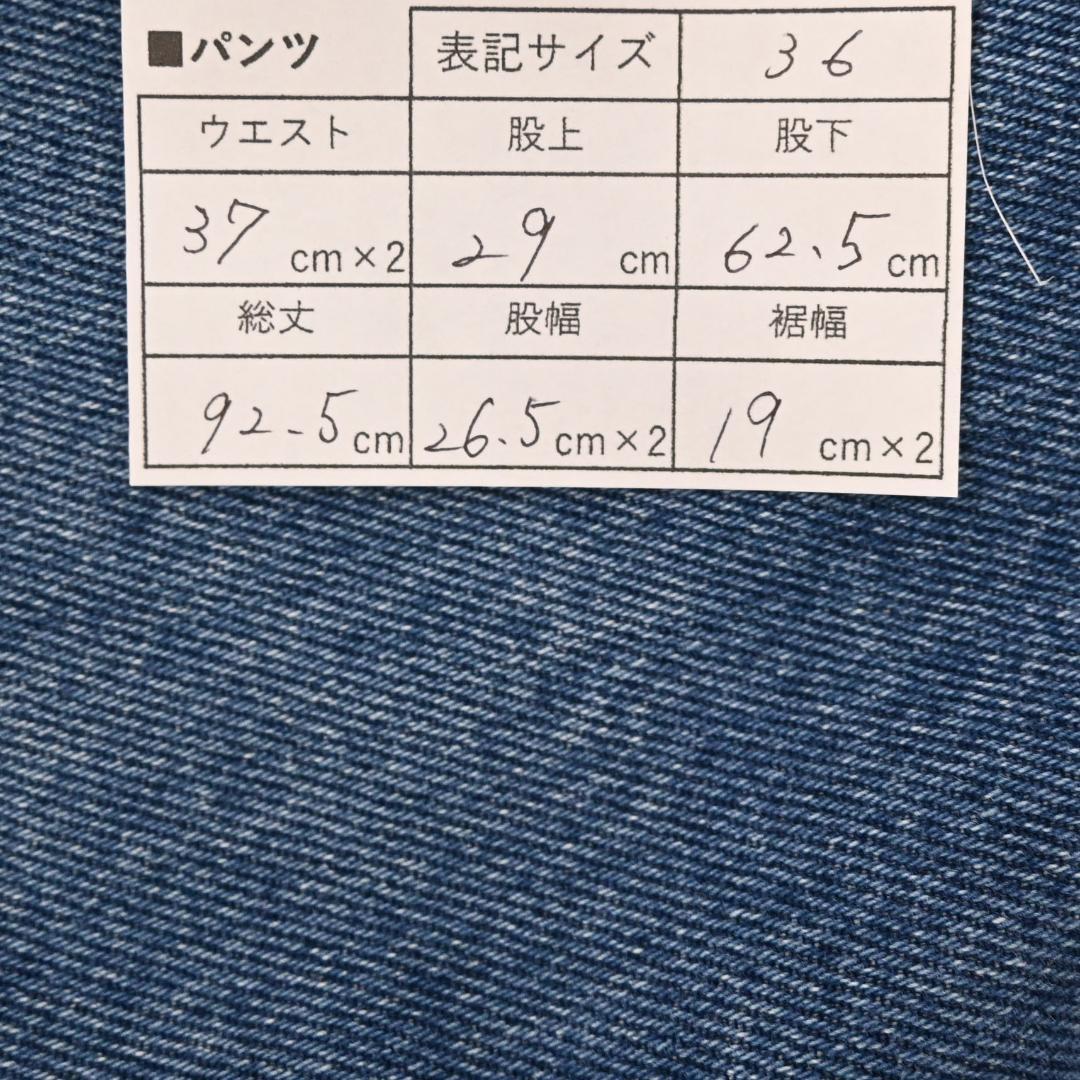 ■パンツ 表記サイズ 36
ウエスト 股上 股下
37 cm×2 29 cm 62.5 cm
総丈 股幅 裾幅
92.5 cm 26.5 cm×2 19 cm×2